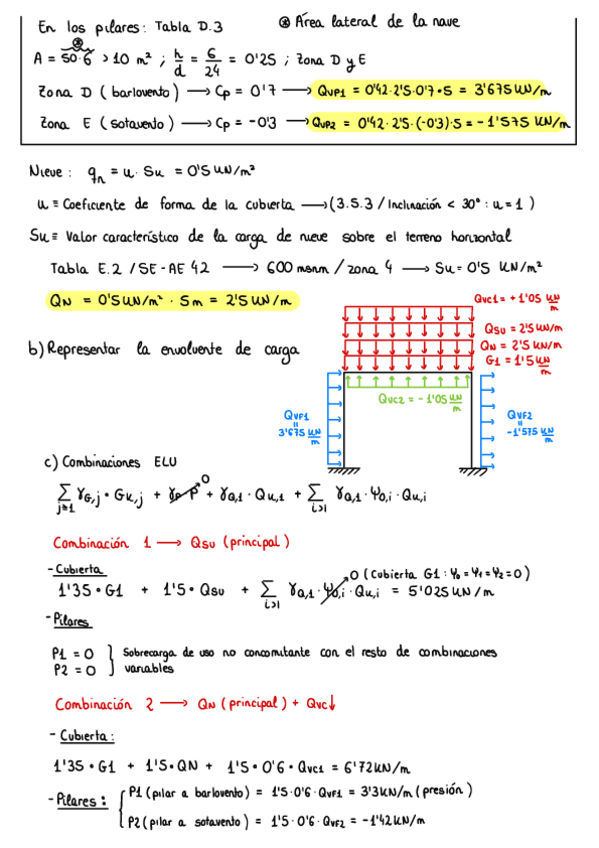 En los pilares: Tabla D.3 ⊛ Área lateral de la nave
⊛
A = 50·6 > 10 m² ; h/d = 6/24 = 0'25 ; Zona D y E
Zona D (barlovento) → Cp = 0'7 → QVP1 = 0'42·2'5·0'7·5 = 3'675 kN/m
Zona E (sotavento) → Cp = -0'3 → QVP2 = 0'42·2'5·(-0'3)·5 = -1'575 kN/m
Nieve: qn = u·Su = 0'5 kN/m²
u ≡ Coeficiente de forma de la cubierta → (3.5.3 / Inclinación < 30º : u = 1)
Su ≡ Valor característico de la carga de nieve sobre el terreno horizontal
Tabla E.2 / SE-AE 42 → 600 msnm / zona 4 → Su = 0'5 kN/m²
QN = 0'5 kN/m² · 5m = 2'5 kN/m
QVC1 = +1'05 kN/m
QSU = 2'5 kN/m
QN = 2'5 kN/m
G1 = 1'5 kN/m
b) Representar la envolvente de carga
QVC2 = -1'05 kN/m
QVP1 = 3'675 kN/m
QVP2 = -1'575 kN/m
c) Combinaciones ELU
∑ j≥1 γG,j · Gk,j + γP P 0 + γQ,1 · Qk,1 + ∑ i>1 γQ,1 · Ψ0,i · Qk,i
Combinación 1 → QSU (principal)
- Cubierta
1'35 · G1 + 1'5 · QSU + ∑ i>1 γQ,1 · Ψ0,i · Qk,i = 5'025 kN/m
0 (Cubierta G1 : Ψ0 = Ψ1 = Ψ2 = 0)
- Pilares
P1 = 0
P2 = 0
Sobrecarga de uso no concomitante con el resto de combinaciones
variables
Combinación 2 → QN (principal) + QVC↓
- Cubierta:
1'35 · G1 + 1'5 · QN + 1'5 · 0'6 · QVC1 = 6'72 kN/m
- Pilares:
P1 (pilar a barlovento) = 1'5·0'6·QVF1 = 3'3 kN/m (presión)
P2 (pilar a sotavento) = 1'5·0'6·QVF2 = -1'42 kN/m